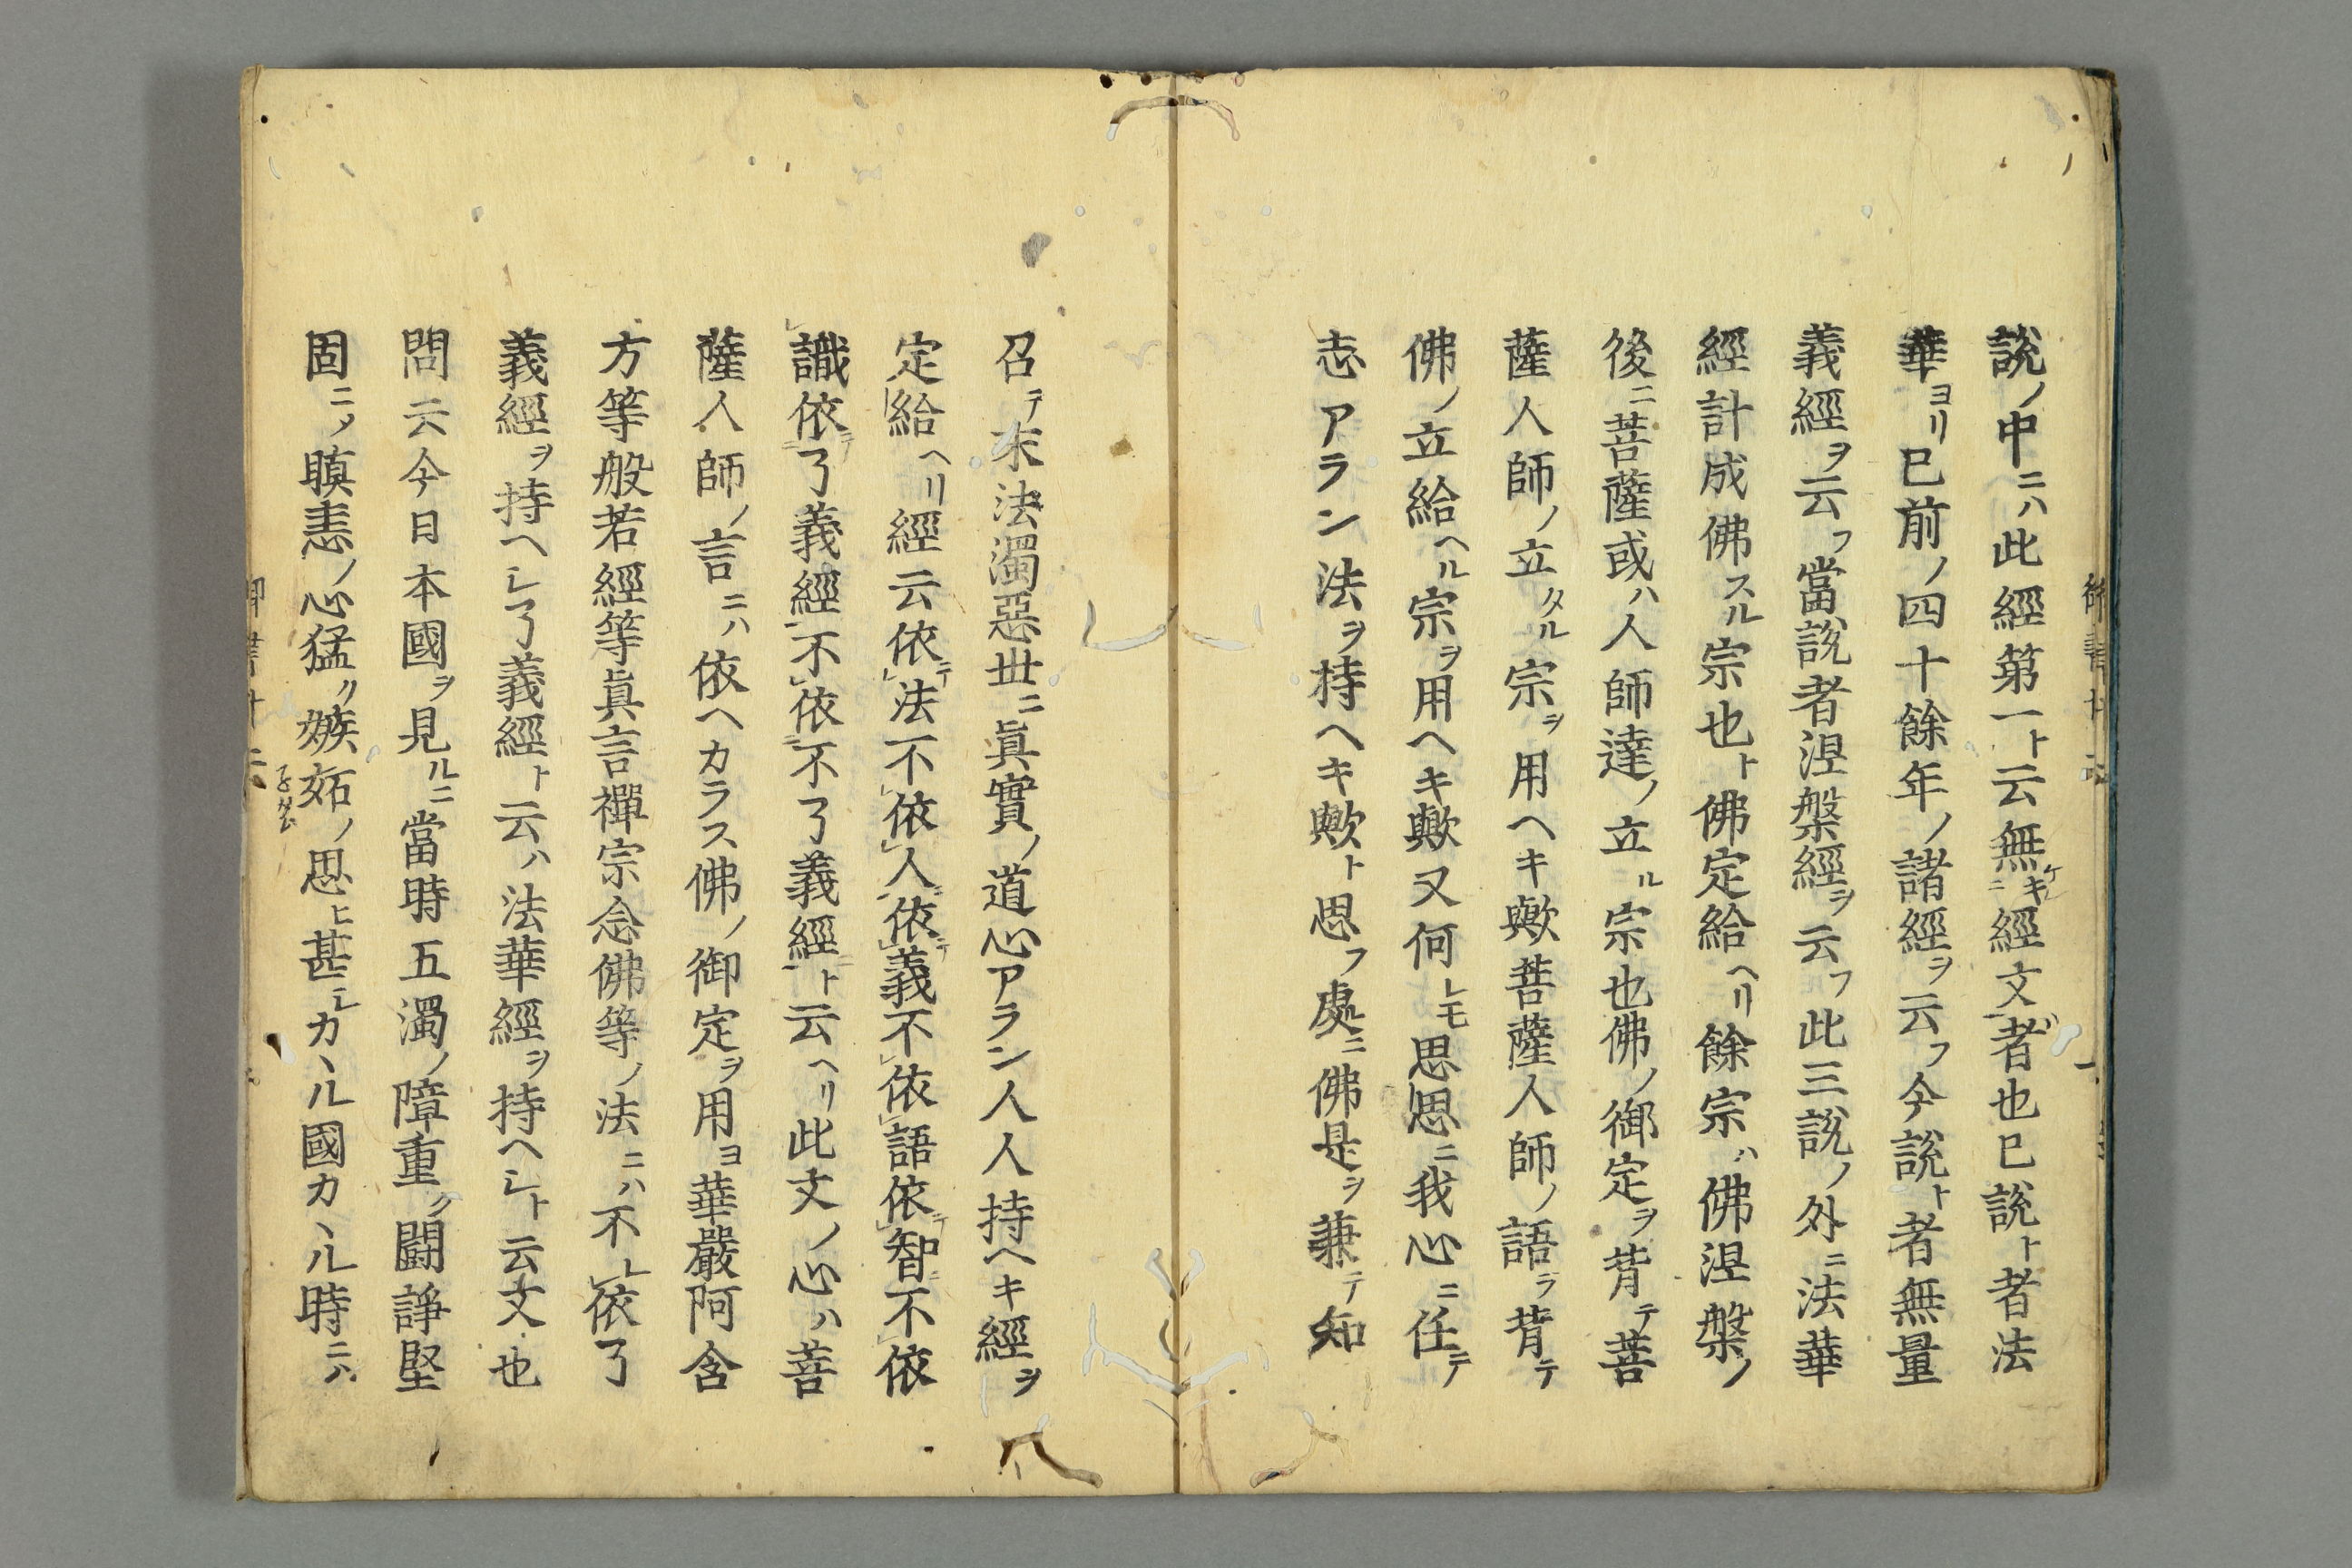 說ノ中ニハ此經第一ト云無キ經文者也已說ト者法
華ヨリ已前ノ四十餘年ノ諸經ヲ云フ今說ト者無量
義經ヲ云フ當說者涅槃經ヲ云フ此三說ノ外ニ法華
經計成佛スル宗也ト佛定給ヘリ餘宗ハ佛涅槃ノ
後ニ菩薩或ハ人師達ノ立ル宗也佛ノ御定ヲ背テ菩
薩人師ノ立タル宗ヲ用ヘキ歟菩薩人師ノ語ヲ背テ
佛ノ立給ヘル宗ヲ用ヘキ歟又何レモ思思ニ我心ニ任テ
志アラン法ヲ持ヘキ歟ト思フ處ニ佛是ヲ兼テ知
召テ末法濁惡世ニ眞實ノ道心アラン人人持ヘキ經ヲ
定給ヘリ經云依テ法不依人依テ義不依語依テ智不依
識依テ了義經不依不了義經ト云ヘリ此文ノ心ハ菩
薩人師ノ言ニハ依ヘカラス佛ノ御定ヲ用ヨ華嚴阿含
方等般若經等眞言禪宗念佛等ノ法ニハ不レ依了
義經ヲ持ヘシ了義經ト云ハ法華經ヲ持ヘシト云文也
問云今日本國ヲ見ルニ當時五濁ノ障重ク鬪諍堅
固ニメ瞋恚ノ心猛ク嫉妬ノ思ヒ甚シカヽル國カヽル時ニハ